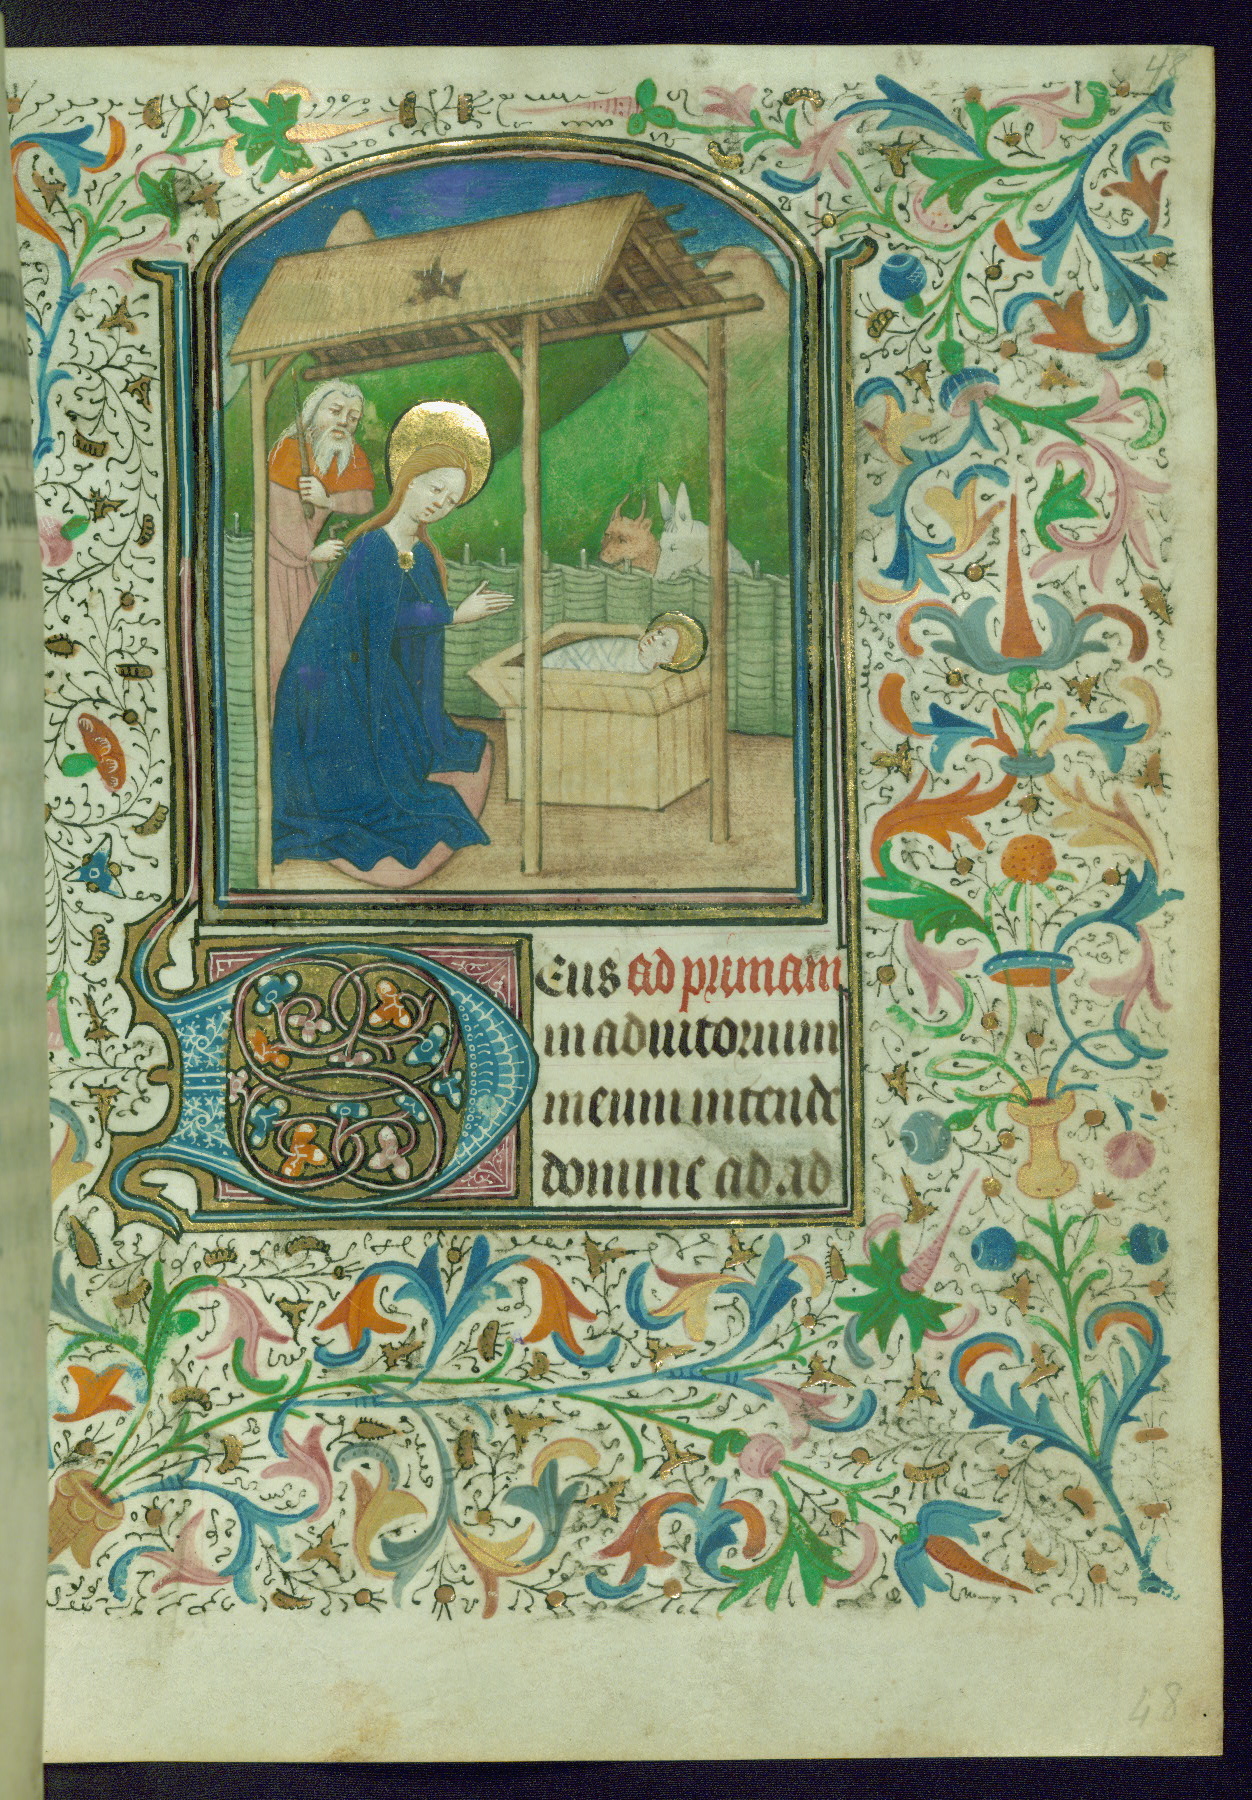 48
Deus ad primam
in adiutorium
meum intende
domine ad ad
48